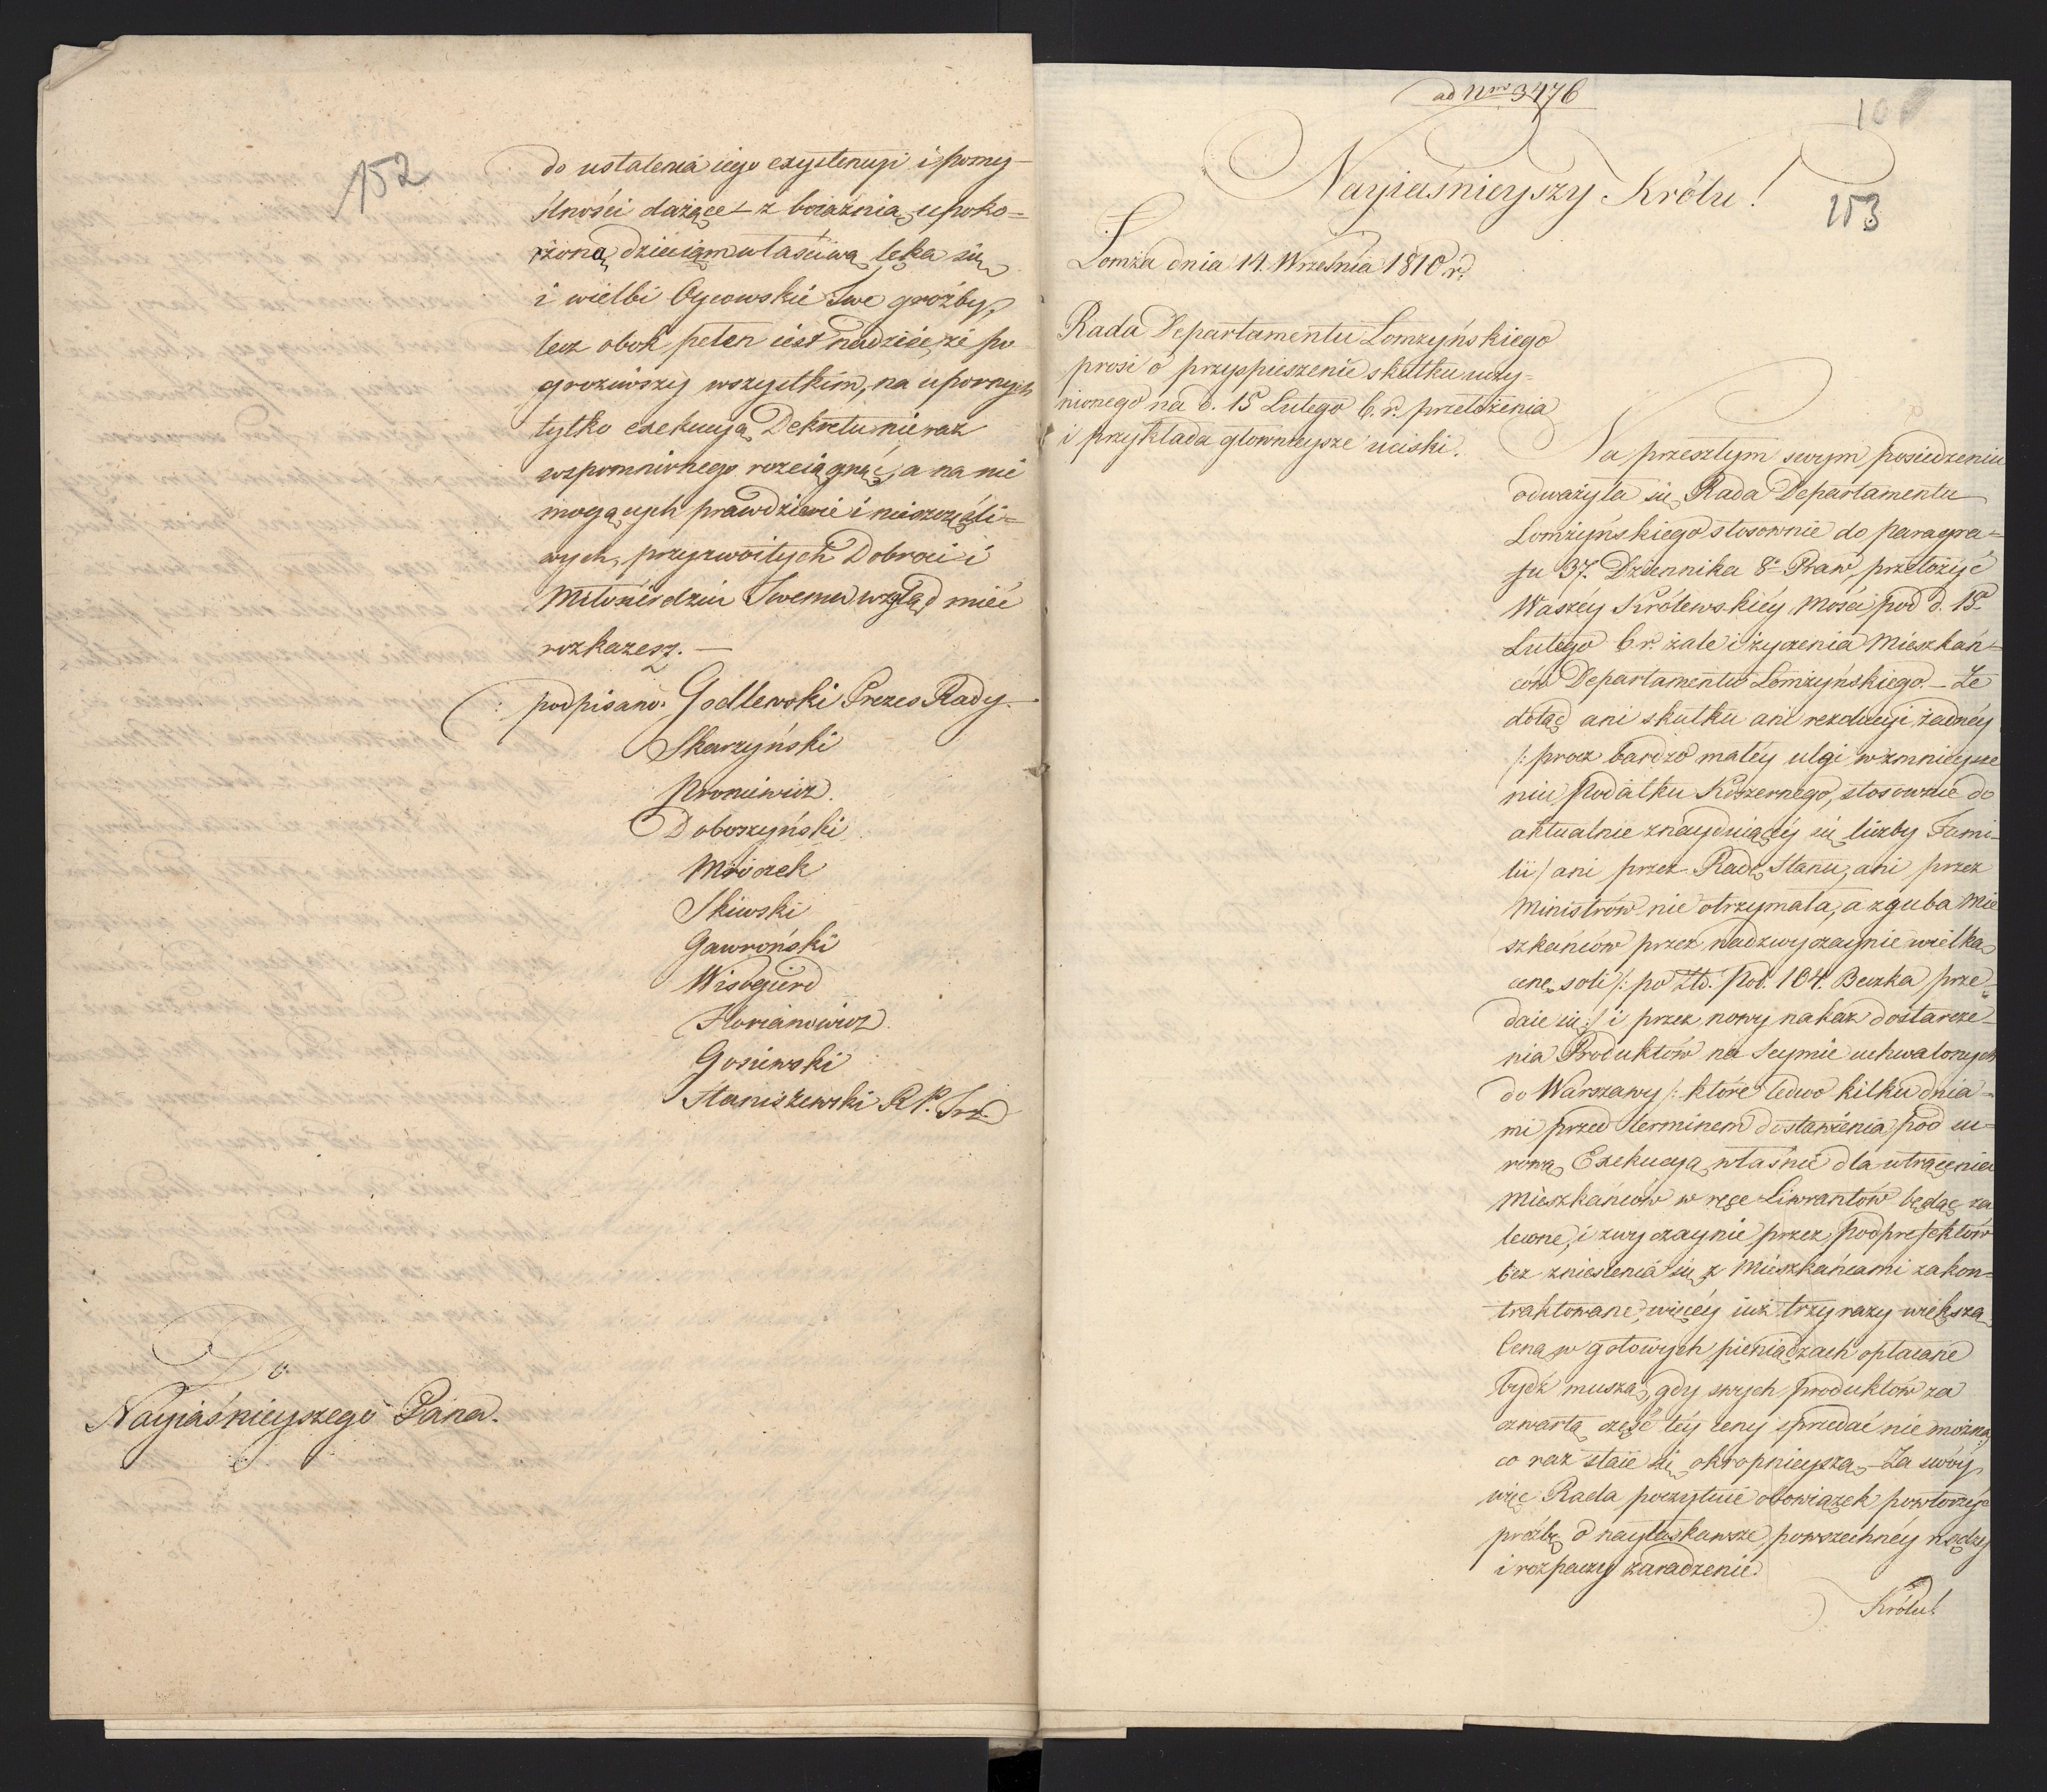 152
do ustalenia iego exystencyi i pomy-
ślności dążące - z boiaźnią upoko-
rzoną dzieciom właściwą lęka się
i wielbi Oycowskie Twe groźby,
lecz obok pełen iest nadziei, że po
groziwszy wszystkim, na upornych
tylko exekucyą Dekretu nie raz
wspomnionego rozciągnąć, a na nie
mogących prawdziwie i nieszczęśli=
wych, przyzwoitych Dobroci i
Miłosierdziu Twemu wzgląd mieć
rozkażesz. —
: podpisano: Godlewski Prezes Rady
Skarzyński
Proniewicz.
Doboszyński
Mroczek
Skiwski
Gawroński
Wisbgierd
Floryanowicz.
Gosiewski
Staniszewski R P. Srz
Do
Nayiaśnieyszego Pana.
ad Nrm 3476
10
Nayiaśnieyszy Królu!
153
Łomża dnia 14. Września 1810 r.
Rada Departamentu Łomżyńskiego
prosi o przyspieszenie skutku uczy-
nionego na d. 15 Lutego b. r. przełożenia
i przykłada głownieysze uciski.
Na przeszłym swym posiedzeniu
odważyła się Rada Departamentu
Łomżyńskiego stosownie do paragra=
fu 37. Dziennika 8o Praw, przełożyć
Waszéy Królewskiéy Mości pod d. 15.
Lutego b r. żale i życzenia Mieszkań=
ców Departamentu Łomżyńskiego. - Że
dotąd ani skutku ani rezolucyi żadnéy
/: procz bardzo małéy ulgi w zmnieysze
niu Podatku Koszernego, stosownie do
aktualnie znayduiącéy się liczby Fami-
lii / ani przez Radę Stanu, ani przez
Ministrów nie otrzymała, a zguba Mie
szkańców przez nadzwyczaynie wielką
cenę soli /: po Złł. Pol. 104. Beczka prze-
daie się :/ i przez nowy nakaz dostarcze-
nia Produktów na Seymie uchwalonych
do Warszawy /: które ledwo kilku dnia=
mi przed terminem dostawienia pod su=
rową Exekucyą właśnie dla wtrącenia
Mieszkańcow w ręce Liwrantów będąc za
lecone, i zwyczaynie przez Podprefektów
bez zniesienia się z Mieszkańcami zakon=
traktowane, więcéy iuż trzy razy większą
Ceną w gotowych pieniądzach opłacane
bydź muszą, gdy swych produktów za
czwartą część téy ceny sprzedać nie można,
co raz staie się okropnieyszą - Za swóy
więc Rada poczytuie obowiązek powtórzyć
prośbę o nayłaskawsze powszechnéy nędzy
i rozpaczy zaradzenie.
Królu!